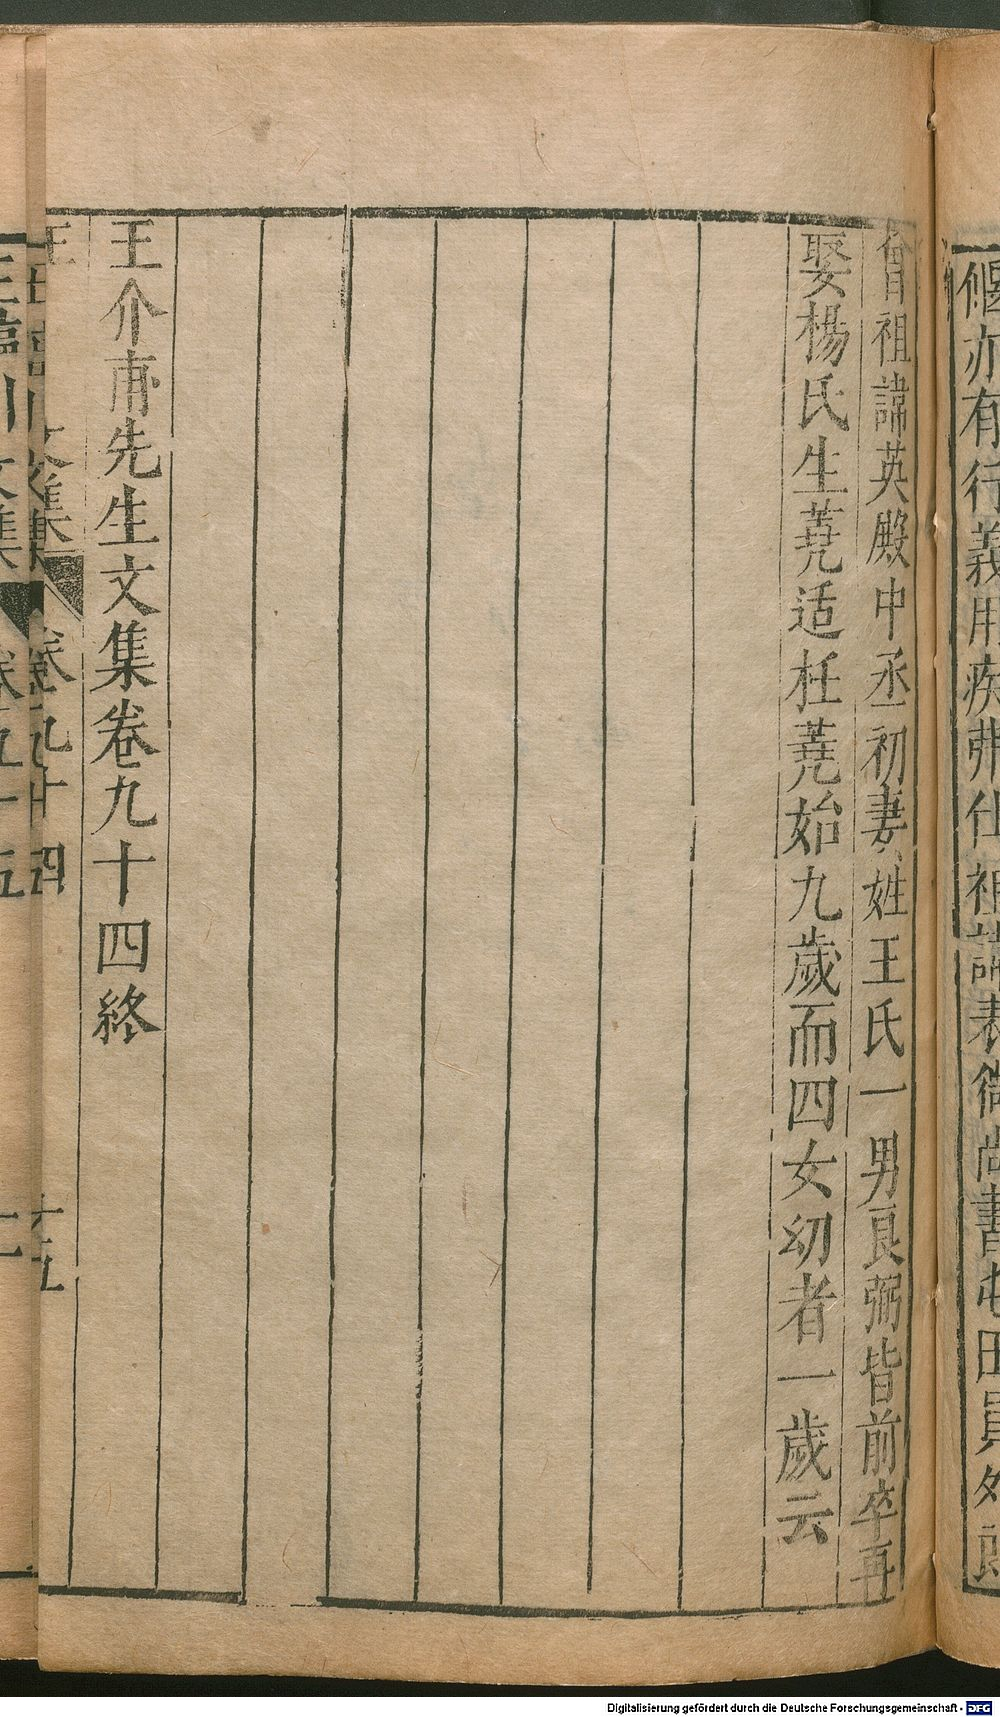 偃亦有行義用疾弗仕祖諱表微尚書屯田員外郎
曾祖諱英殿中丞初妻姓王氏一男良弼皆前卒再
娶楊氏生蕘适枉蕘始九歲而四女幼者一歲云
王介甫先生文集卷九十四終
王 文集 卷九十四 十五
王臨川文集 卷九十四
王臨川文集 卷九十五 一
Digitalisierung gefördert durch die Deutsche Forschungsgemeinschaft - DFG